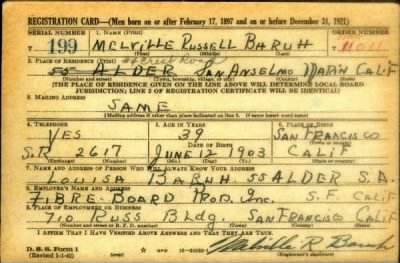 REGISTRATION CARD—(Men born on or after February 17, 1897 and on or before December 31, 1921)
SERIAL NUMBER 1. NAME (Print) ORDER NUMBER
199 MELVILLE RUSSELL BARUH 11011
2. PLACE OF RESIDENCE (Print) Crest Road
55 ALDER SAN ANSELMO MARIN CALIF
(Number and street) (Town, township, village, or city) (County) (State)
[THE PLACE OF RESIDENCE GIVEN ON THE LINE ABOVE WILL DETERMINE LOCAL BOARD
JURISDICTION; LINE 2 OF REGISTRATION CERTIFICATE WILL BE IDENTICAL]
3. MAILING ADDRESS
SAME
[Mailing address if other than place indicated on line 2. If same insert word same]
4. TELEPHONE 5. AGE IN YEARS 6. PLACE OF BIRTH
YES 39 SAN FRANCISCO
DATE OF BIRTH
S.R 2617 JUNE 12 1903 CALIF
(Exchange) (Number) (Mo.) (Day) (Yr.) (State or country)
7. NAME AND ADDRESS OF PERSON WHO WILL ALWAYS KNOW YOUR ADDRESS
LOUISA BARUH 55 ALDER S.A.
8. EMPLOYER'S NAME AND ADDRESS
FIBRE-BOARD PROD. Inc. S.F. CALIF
9. PLACE OF EMPLOYMENT OR BUSINESS
710 RUSS Bldg. SAN FRANCISCO CALIF
(Number and street or R. F. D. number) (Town) (County) (State)
I AFFIRM THAT I HAVE VERIFIED ABOVE ANSWERS AND THAT THEY ARE TRUE.
D. S. S. Form 1
(Revised 1-1-42) Melville R Baruh
(Registrant's signature)